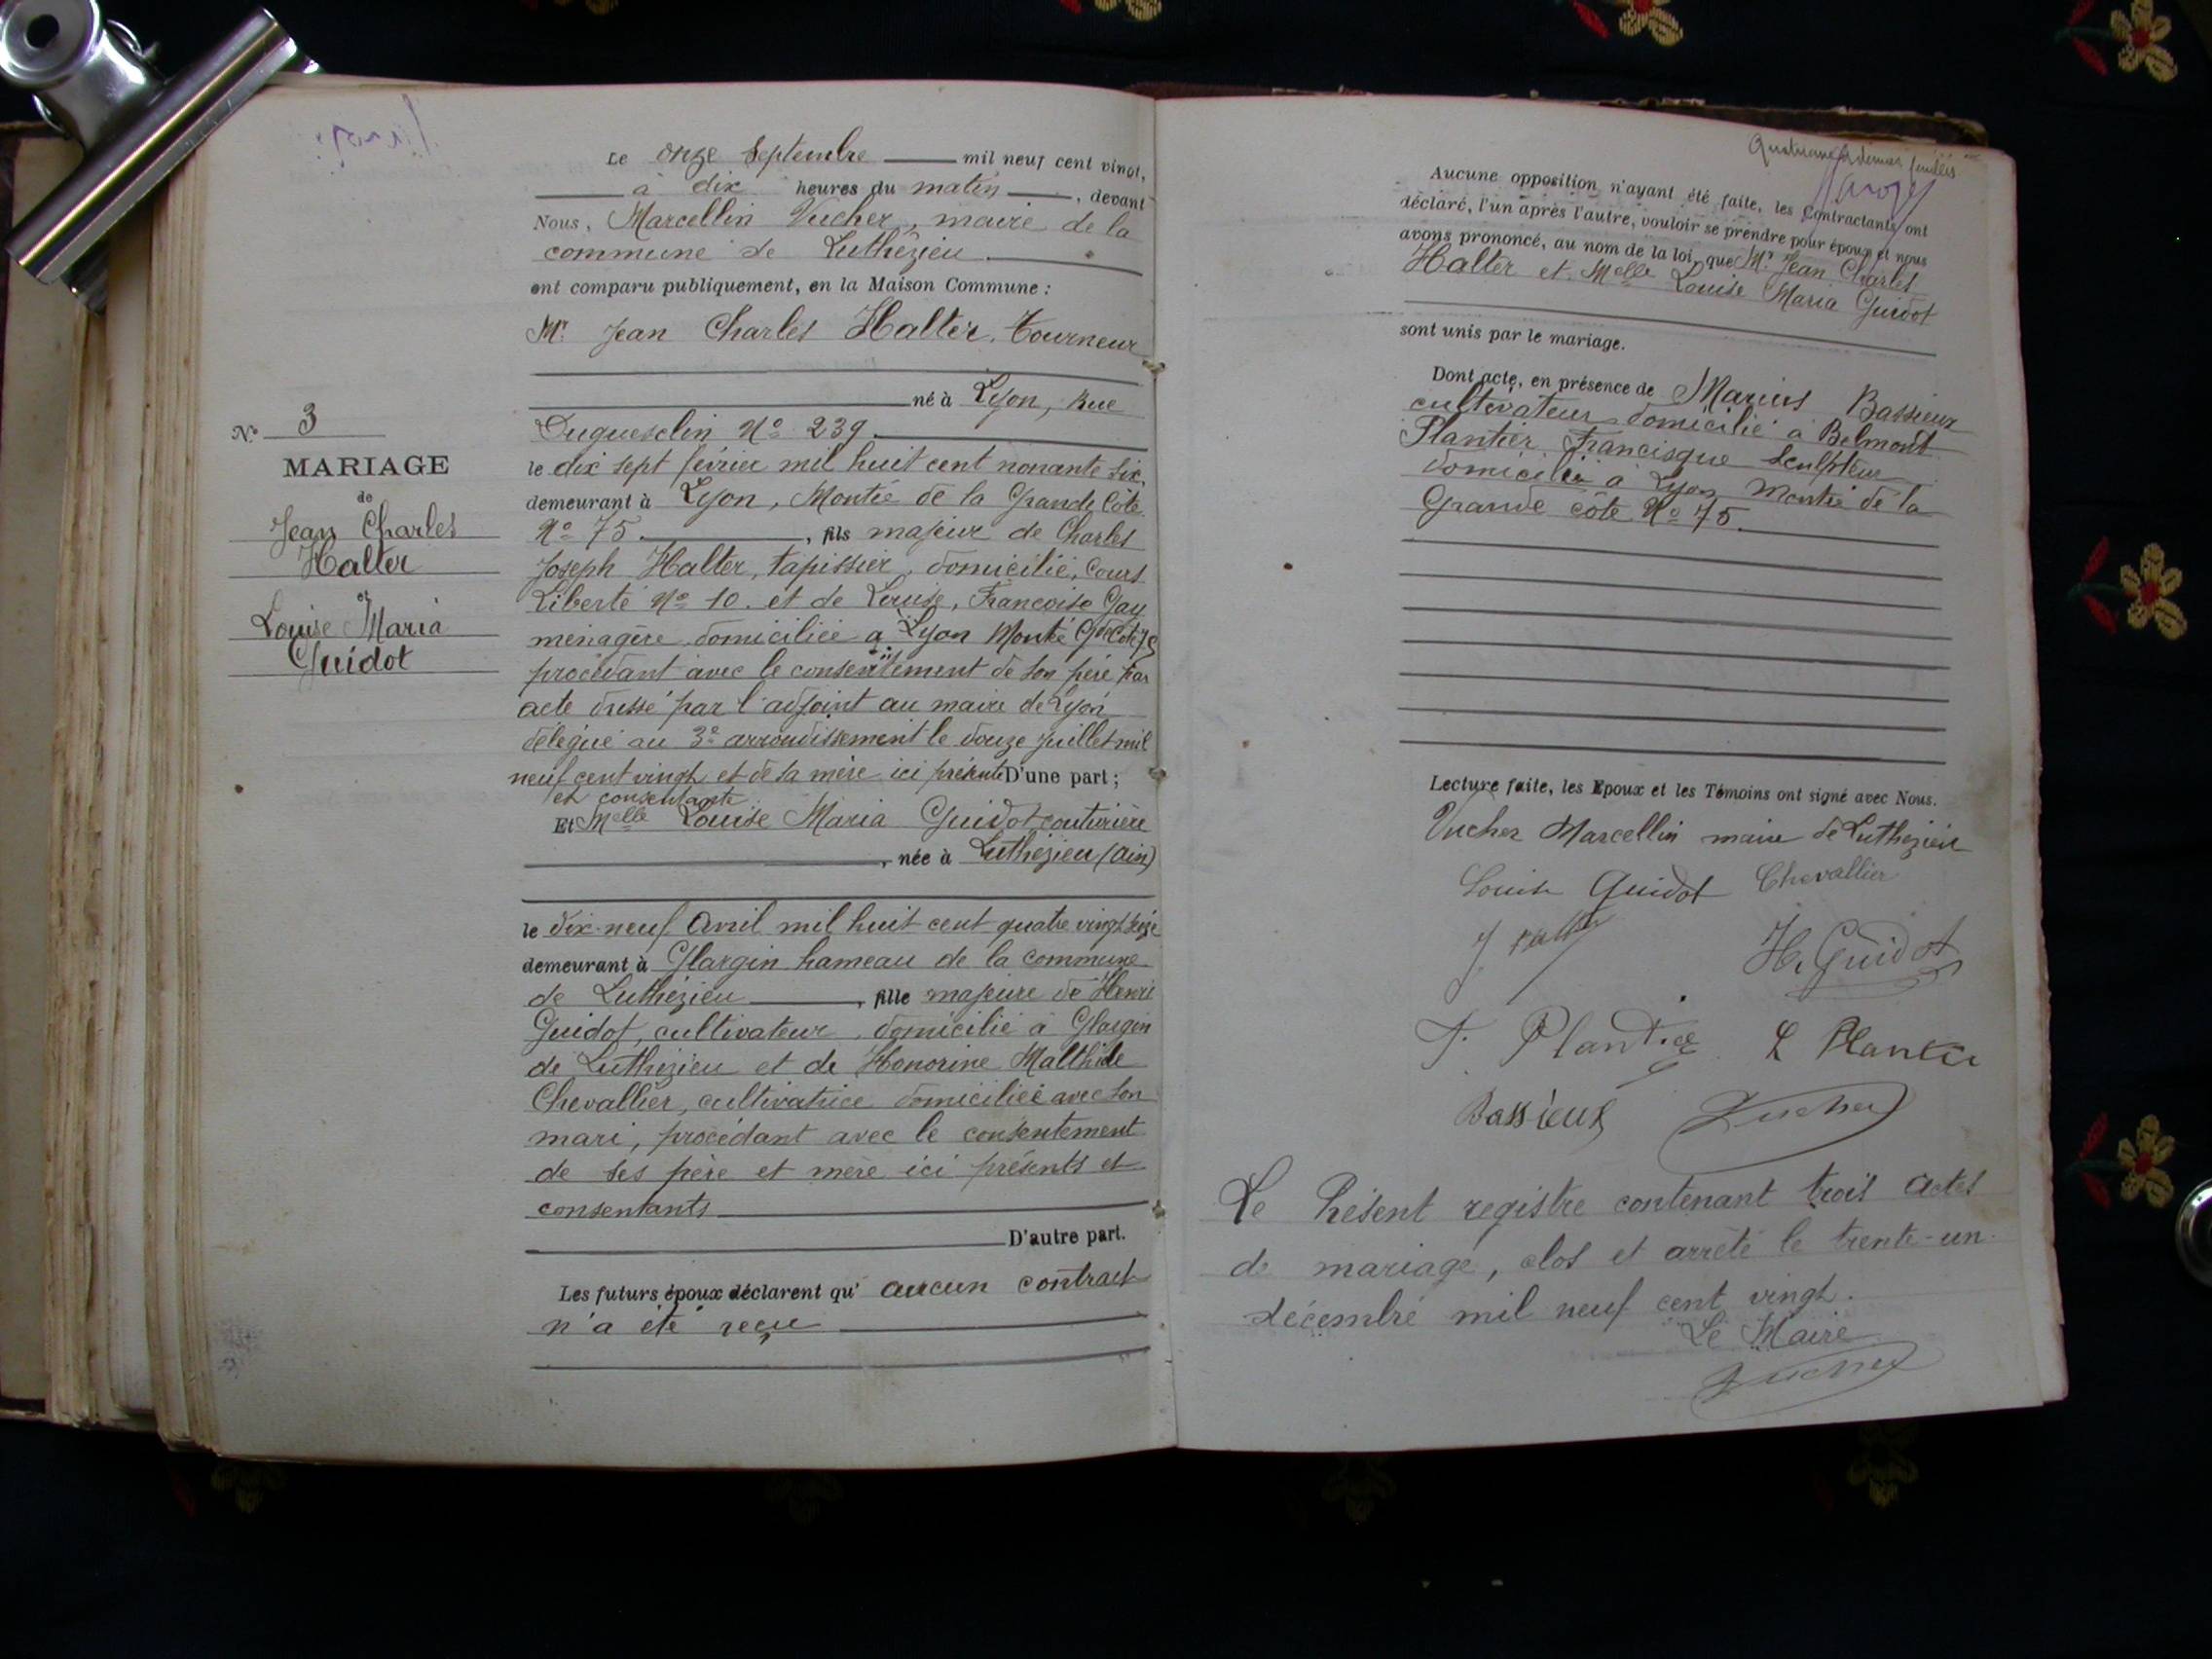 Le onze Septembre mil neuf cent vingt,
à dix heures du matin, devant
Nous, Marcellin Vucher, maire de la
commune de Luthézieu.
ont comparu publiquement, en la Maison Commune :
Mr Jean Charles Halter, Tourneur
né à Lyon, Rue
Duguesclin No 239.
le dix sept février mil huit cent nonante six,
demeurant à Lyon, Montée de la Grande Côte
No 75., fils majeur de Charles
Joseph Halter, tapissier, domicilié, Cours
Liberté No 10. et de Louise, Francoise Gay
ménagère domiciliée a Lyon Montée Gde Côte 75
procédant avec le consentement de son père par
acte dressé par l'adjoint au maire de Lyon
délégué au 3e arrondissement le douze juillet mil
neuf cent vingt et de sa mère ici présente D'une part ;
et consentante
Et Melle Louise Maria Guidot couturière
, née à Luthézieu (Ain)
le dix-neuf Avril mil huit cent quatre vingt seize
demeurant à Glargin hameau de la commune
de Luthézieu, fille majeure de Henri
Guidot, cultivateur, domicilié à Glargin
de Luthézieu et de Honorine Malthide
Chevallier, cultivatrice domiciliée avec son
mari, procédant avec le consentement
de ses père et mère ici présents et
consentants
D'autre part.
Les futurs époux déclarent qu' aucun contract
n'a été reçu
No 3
MARIAGE
de
Jean Charles
Halter
et
Louise Maria
Guidot
Aucune opposition n'ayant été faite, les Contractants ont
déclaré, l'un après l'autre, vouloir se prendre pour époux et nous
avons prononcé, au nom de la loi, que Mr Jean Charles
Halter et Melle Louise Maria Guidot
sont unis par le mariage.
Dont acte, en présence de Marius Bassieux
cultivateur domicilié à Belmont
Plantier Francisque Sculpteur
domicilié à Lyon Montée de la
Grande côte No 75.
Lecture faite, les Epoux et les Témoins ont signé avec Nous.
Vucher Marcellin maire de Luthézieu
Louise Guidot Chevallier
H. Guidot
F. Plantier L Plantier
Bassieux Vucher
Le Présent registre contenant trois actes
de mariage, clos et arrêté le trente-un
décembre mil neuf cent vingt.
Le Maire
Vucher